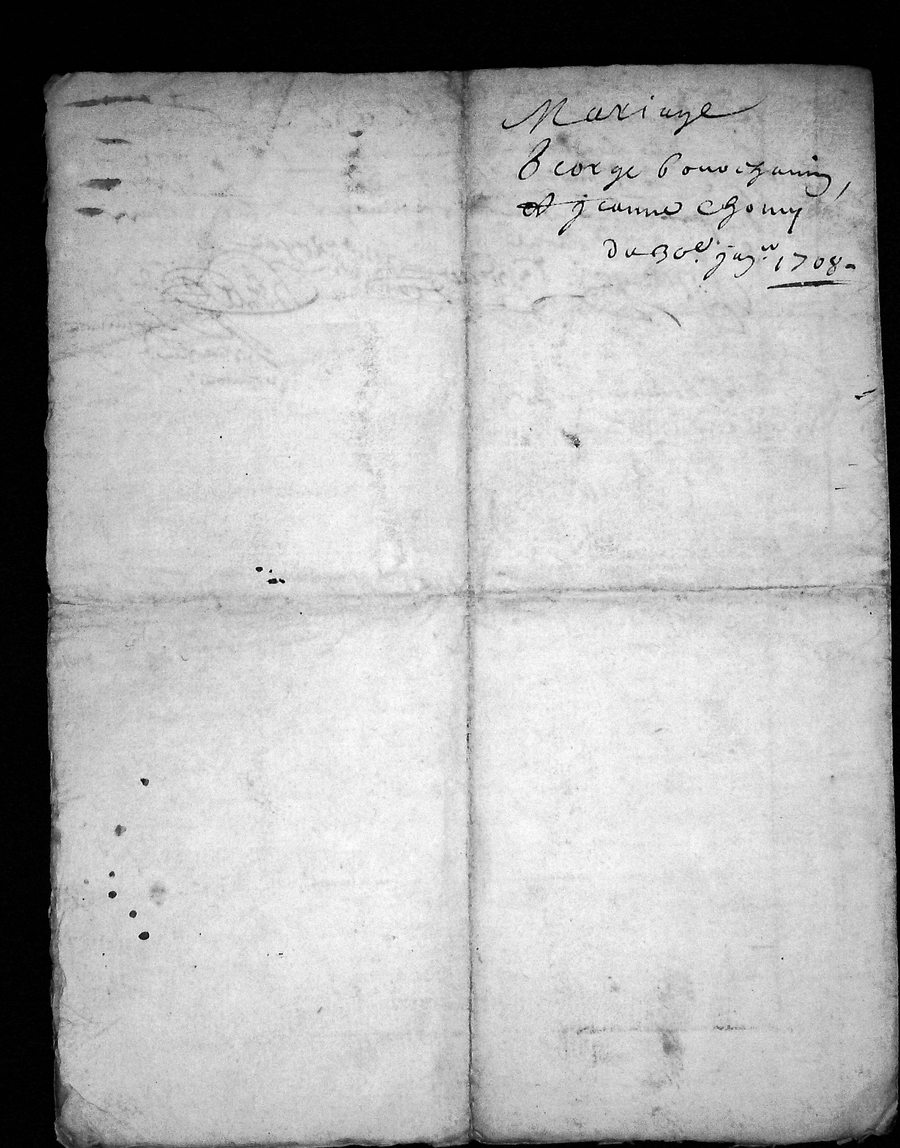 Mariage
George Bouochanin,
Et Jeanne Chomy
du 30.e Janv.er 1708.